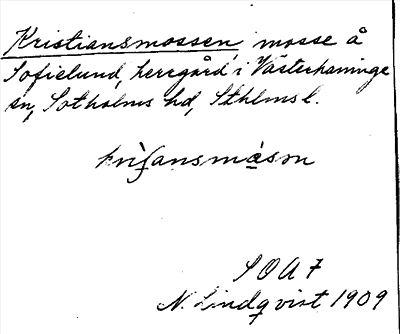 Kristiansmossen, mosse å
Sofielund, herrgård i Västerhaninge
sn, Sotholms hd, Sthlms l.
krìʃansmåsɷn
SOA 7
N. Lindqvist 1909